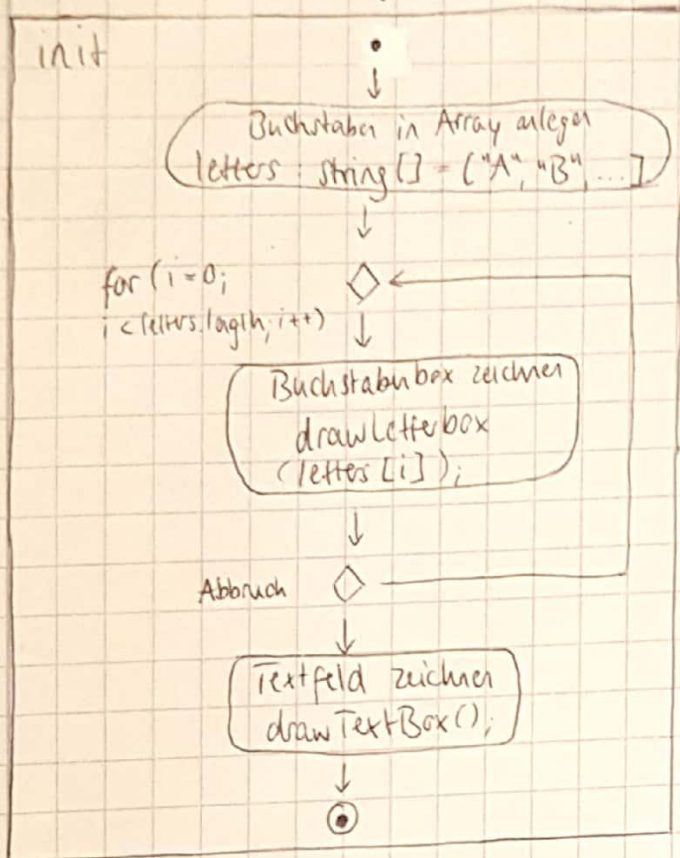 init
Buchstaben in Array anlegen
letters : string [] = ["A", "B", ...]
for (i=0;
i < letters.length; i++)
Buchstabenbox zeichnen
drawLetterbox
(letters [i] );
Abbruch
Textfeld zeichnen
drawTextBox();